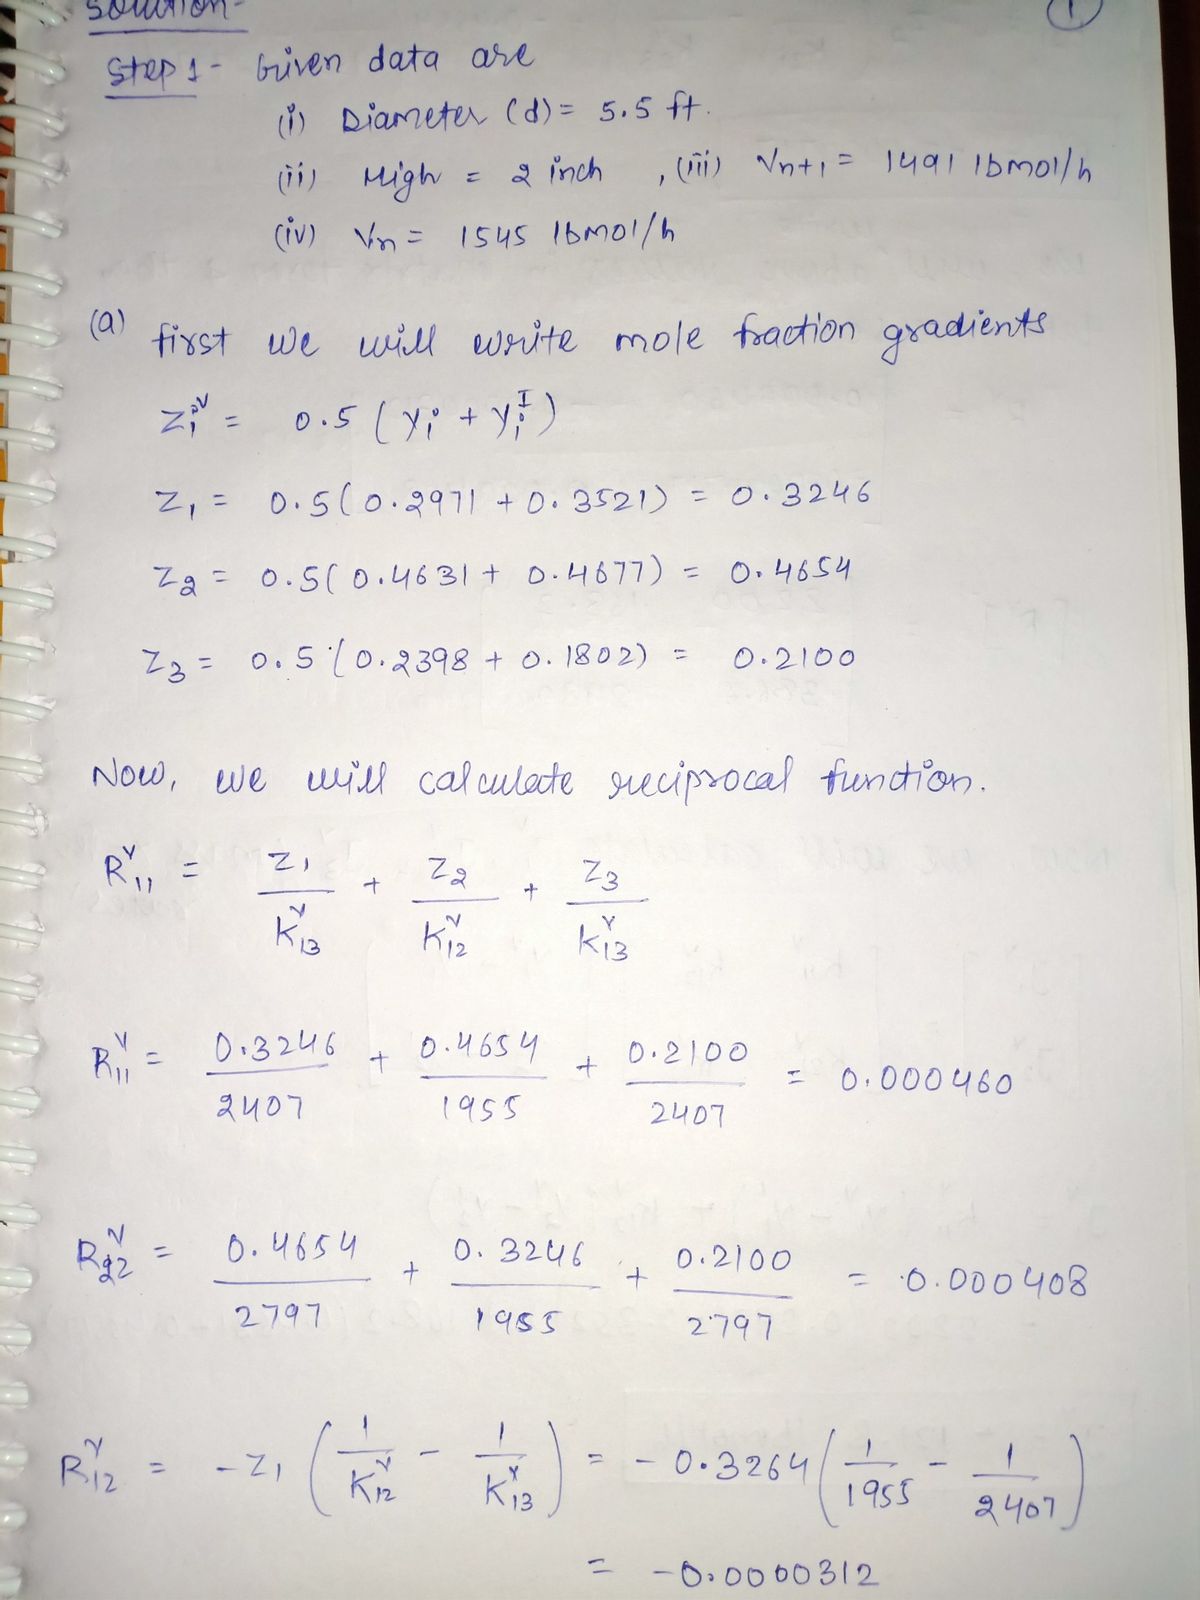 Solution-
1
Step 1- Given data are
(i) Diameter (d) = 5.5 ft.
(ii) High = 2 inch , (iii) Vn+1 = 1491 lbmol/h
(iv) Vn = 1545 lbmol/h
(a) first we will write mole fraction gradients
Zᵢⱽ = 0.5 ( yᵢ + yᵢᴵ )
Z₁ = 0.5 ( 0.2971 + 0.3521) = 0.3246
Z₂ = 0.5( 0.4631 + 0.4677) = 0.4654
Z₃ = 0.5 (0.2398 + 0.1802) = 0.2100
Now, we will calculate reciprocal function.
R₁₁ⱽ = Z₁/K₁₃ⱽ + Z₂/K₁₂ⱽ + Z₃/K₁₃ⱽ
R₁₁ⱽ = 0.3246/2407 + 0.4654/1955 + 0.2100/2407 = 0.000460
R₂₂ⱽ = 0.4654/2797 + 0.3246/1955 + 0.2100/2797 = 0.000408
R₁₂ⱽ = -Z₁ ( 1/K₁₂ⱽ - 1/K₁₃ⱽ ) = - 0.3264 ( 1/1955 - 1/2407 )
= -0.0000312